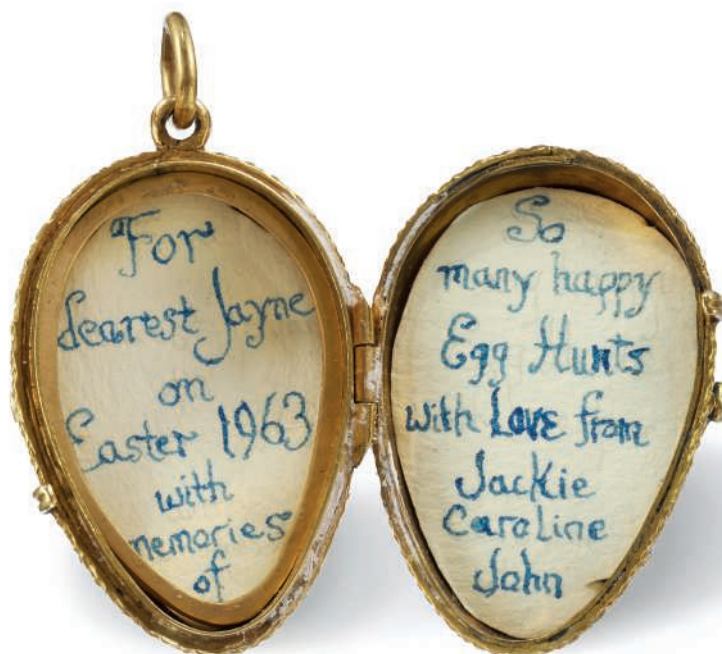 For
dearest Jayne
on
Easter 1963
with
memories
of
So
many happy
Egg Hunts
with Love from
Jackie
Caroline
John